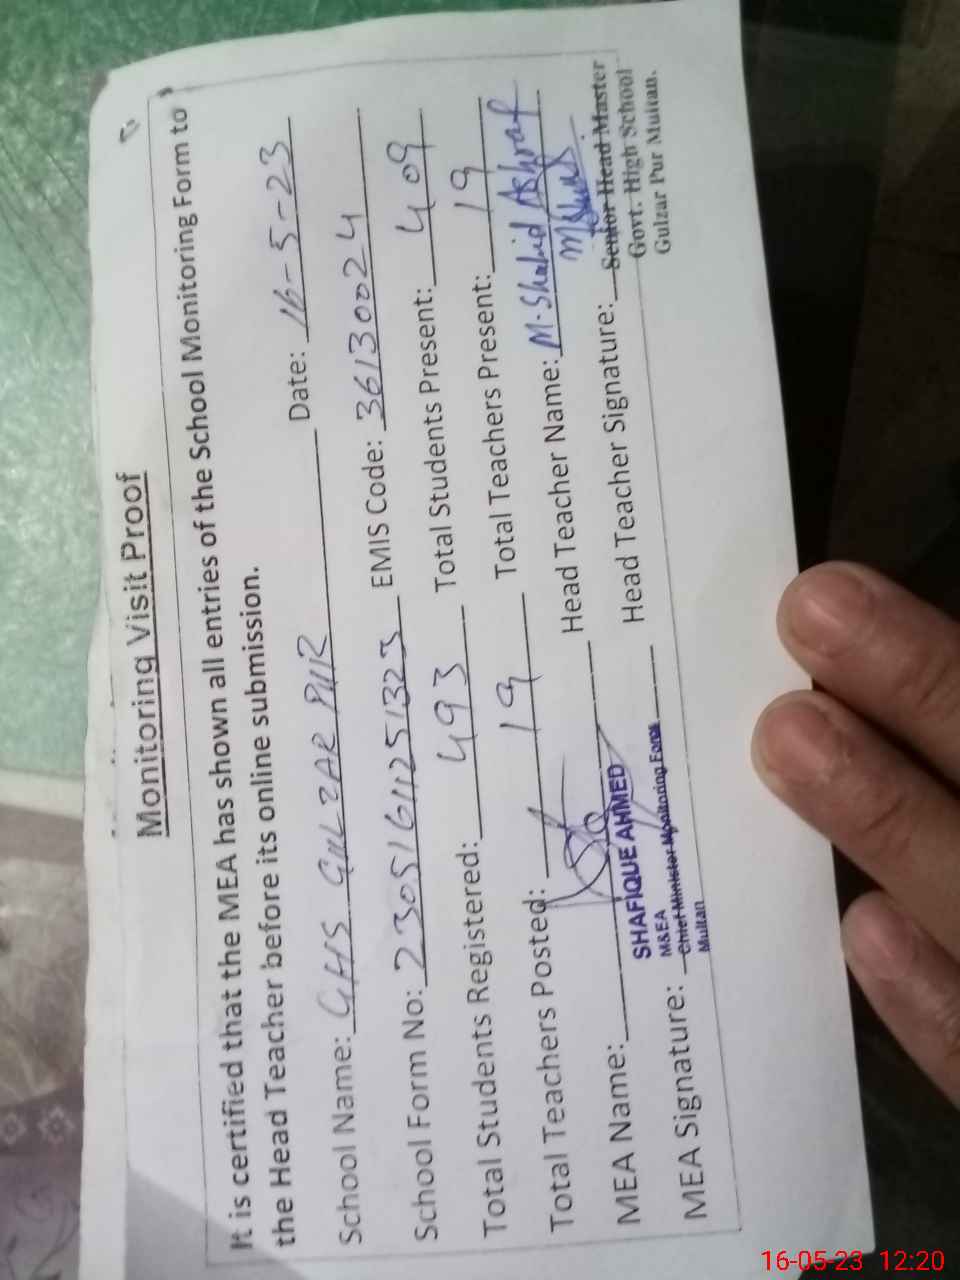 Monitoring Visit Proof
It is certified that the MEA has shown all entries of the School Monitoring Form to
the Head Teacher before its online submission.
School Name: GHS GULZAR PUR Date: 16-5-23
School Form No: 23051611251323 EMIS Code: 36130024
Total Students Registered: 493 Total Students Present: 409
Total Teachers Posted: 19 Total Teachers Present: 19
MEA Name: Head Teacher Name: M. Shahid Ashraf
SHAFIQUE AHMED
M&EA
MEA Signature: Chief Minister Monitoring Force Head Teacher Signature: Senior Head Master
Multan
Govt. High School
Gulzar Pur Multan.
16-05-23 12:20